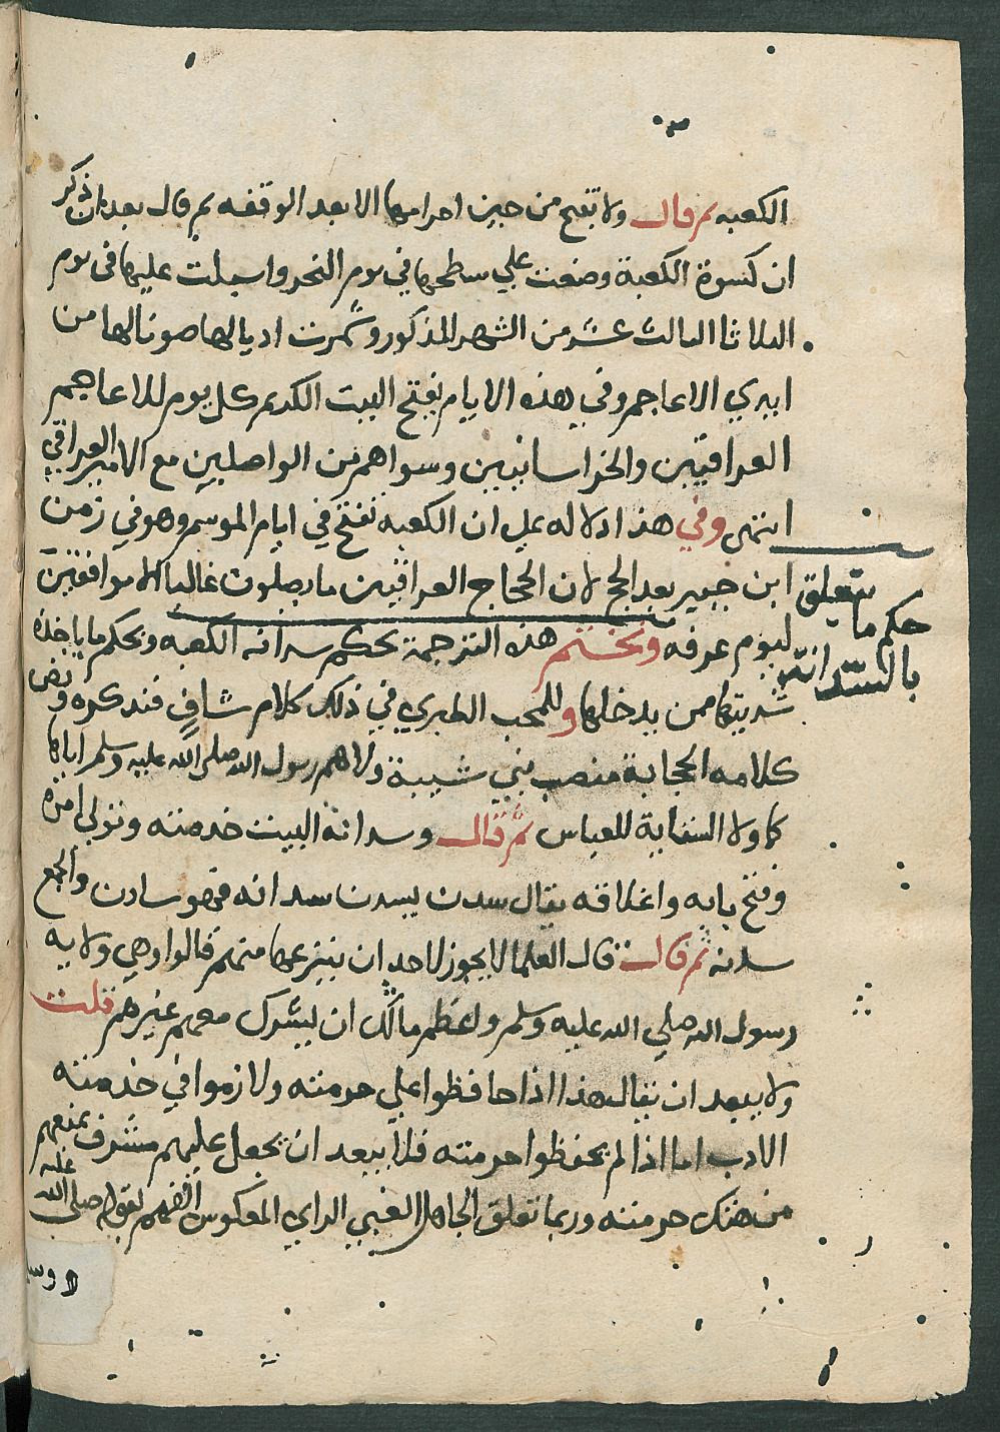 الكعبه ثم قال ولا تفتح من حين احرامها الا بعد الوقفه ثم قال بعد ان ذكر
ان كسوة الكعبة وضعت علي سطحها في يوم النحر واسبلت عليها في يوم
الثلاثا الثالث عشر من الشهر المذكور وشمرت اذيالها صونا لها من
ايدي الاعاجم وفي هذه الايام يفتح البيت الكريم كل يوم للاعاجم
العراقيين والخراسانيين وسواهم من الواصلين مع الامير العراقي
انتهى وفي هذا دلاله علي ان الكعبه تفتح في ايام الموسم وهو في زمن
ابن جبير بعد الحج لان الحجاج العراقيين ما يصلون غالبا الا موافقين
ليوم عرفه ونختم هذه الترجمة بحكم سدانه الكعبه وبحكم ما ياخذه
شيبتها ممن يدخلها وللمحب الطبري في ذلك كلام شافٍ فنذكره ونص
كلامه الحجابة منصب بني شيبة ولاهم رسول الله صلى الله عليه وسلم اياها
كما ولا السقاية للعباس ثم قال وسدانة البيت خدمته وتولى امره
وفتح بابه واغلاقه يقال سدن يسدن سدانه فهو سادن والجمع
سدنه ثم قال قال العلما لا يجوز لاحد ان ينزعها منهم قالوا وهي ولايه
رسول الله صلي الله عليه وسلم واعظم مالك ان يشرك معهم غيرهم قلت
ولا يبعد ان يقال هذا اذا حافظوا علي حرمته ولازموا في خدمته
الادب اما اذا لم يحفظوا حرمته فلا يبعد ان يجعل عليهم مشرف يمنعهم
من هتك حرمته وربما تعلق الجاهل الغبي الراي المعكوس الفهم بقوله صلى الله عليه
وس
حكم ما يتعلق
بالسدانة